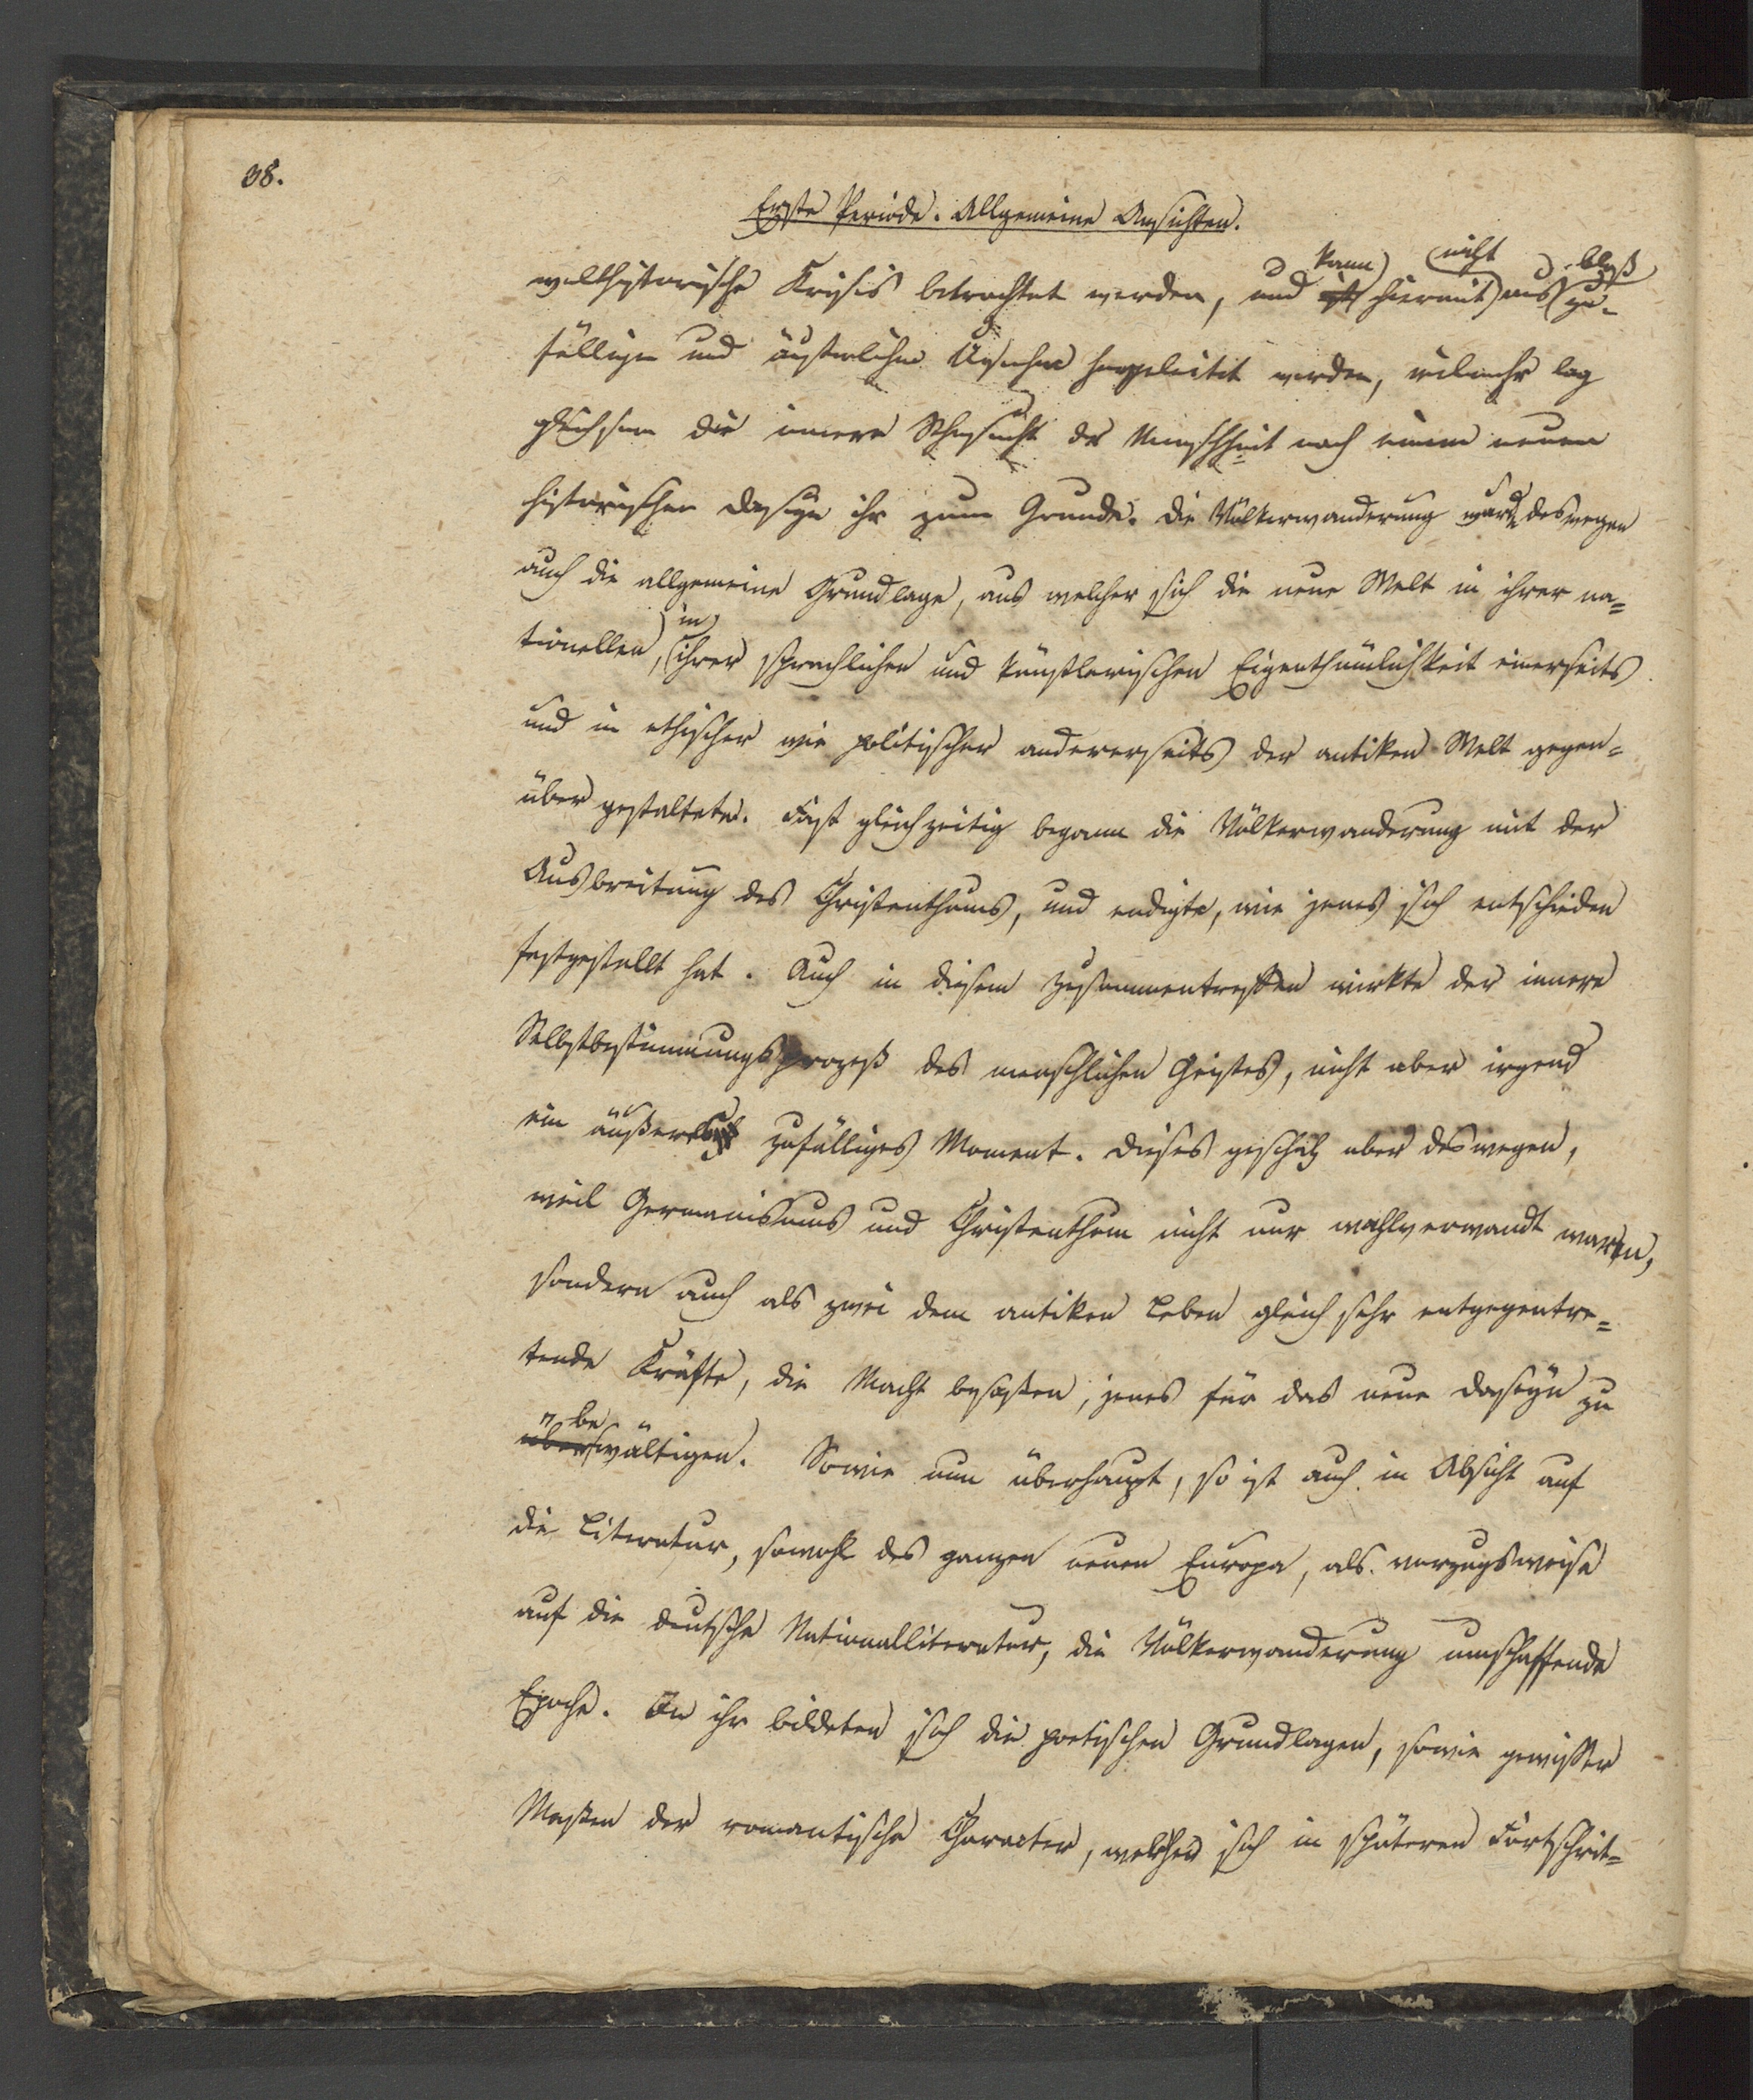 38.
Erste Periode. Allgemeine Ansichten.
welthistorische Krisis betrachtet werden, und ist kann hiermit nicht aus bloß zu-
fälligen und äußerlichen Ursachen hergeleitet werden, vielmehr lag
gleichsam die innere Sehnsucht der Menschheit nach einem neuen
historischen Daseyn ihr zum Grunde. Die Völkerwanderung wurde deswegen
auch die allgemeine Grundlage, aus welcher sich die neue Welt in ihrer na=
tionellen, in ihrer sprachlichen und künstlerischen Eigenthümlichkeit einerseits
und in ethischer wie politischer andererseits der antiken Welt gegen=
über gestaltete. Fast gleichzeitig begann die Völkerwanderung mit der
Ausbreitung des Christenthums, und endigte, wie jenes sich entschieden
festgestellt hat. Auch in diesem Zusammentreffen wirkte der innere
Selbstbestimmungsprozeß des menschlichen Geistes, nicht aber irgend
ein äußerlich zufälliges Moment. Dieses geschah aber deswegen,
weil Germanismus und Christenthum nicht nur wahlverwandt waren,
sondern auch als zwei dem antiken Leben gleich sehr entgegentre=
tende Kräfte, die Macht besaßen, jenes für das neue Daseyn zu
über be wältigen. Sowie nun überhaupt, so ist auch in Absicht auf
die Literatur, sowohl des ganzen neuen Europa, als vorzugsweise
auf die deutsche Nationalliteratur, die Völkerwanderung umschaffende
Epoche. In ihr bildeten sich die poetischen Grundlagen, sowie gewisser
Maßen der romantische Character, welcher sich in späteren Fortschrit=